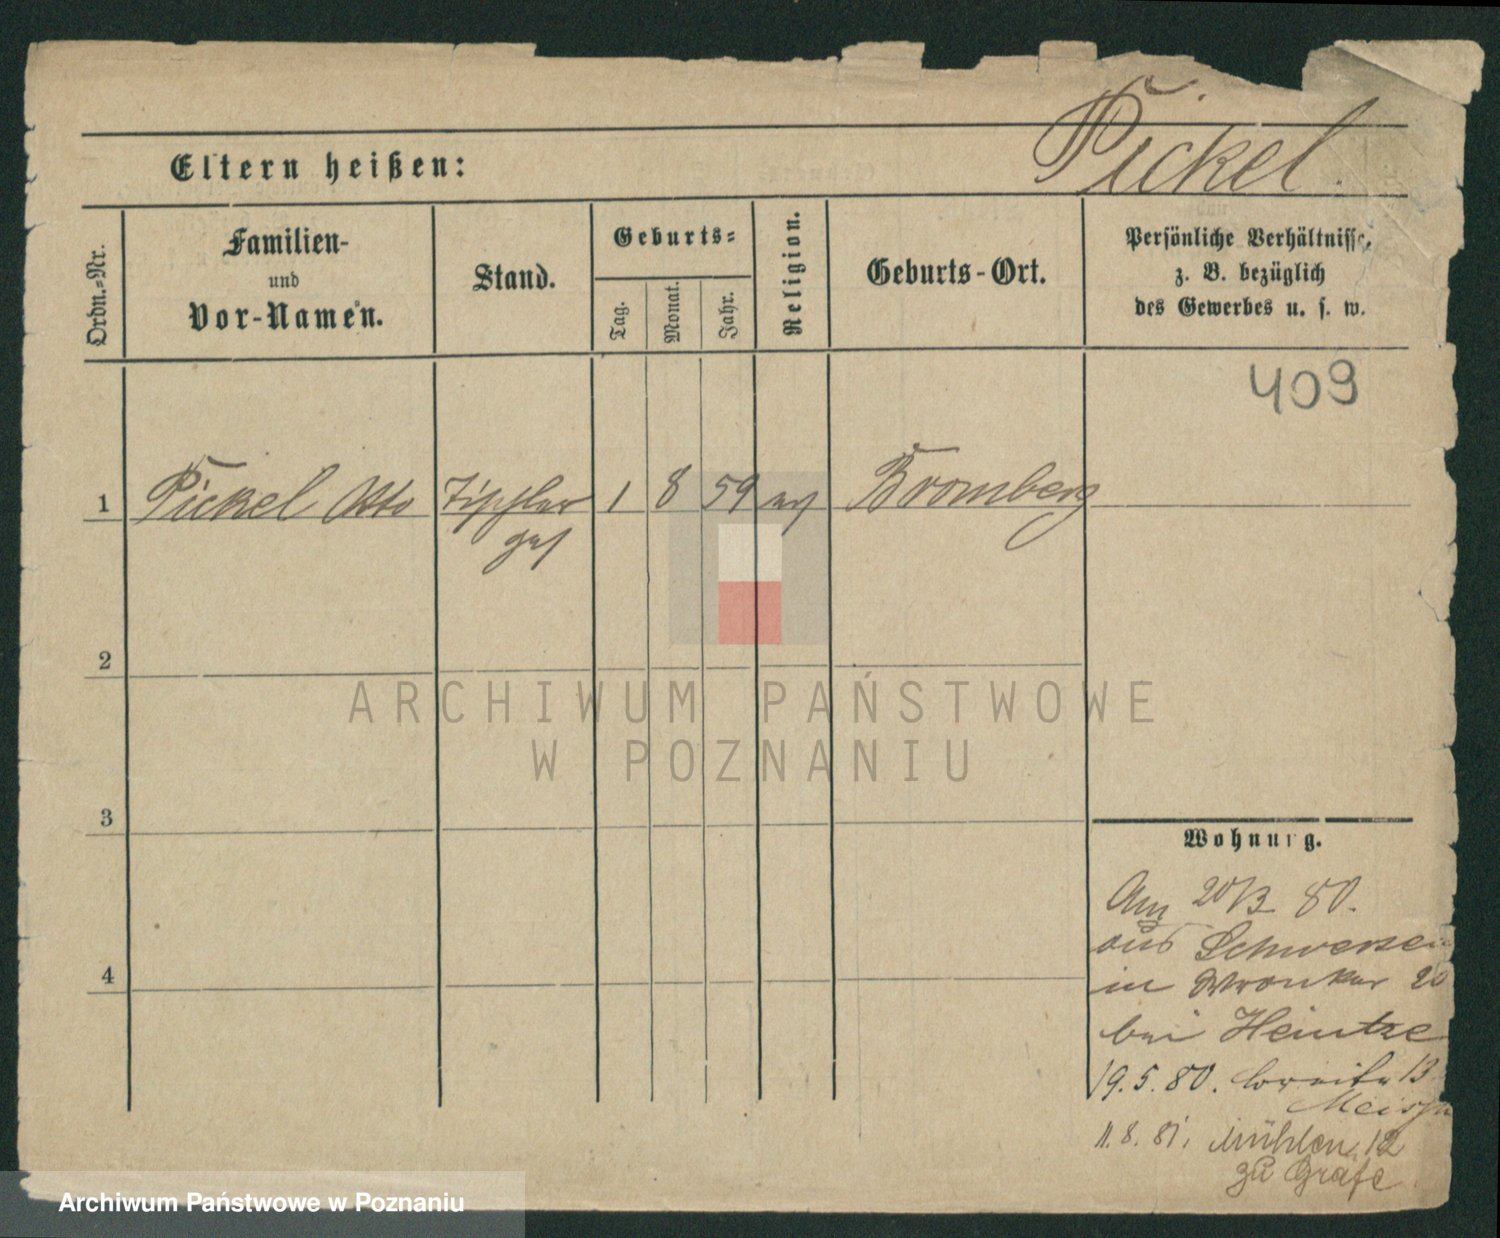 Pickel.
Eltern heißen:
Ordn.-Nr.
Familien-
und
Vor-Namen.
Stand.
Geburts-
Tag.
Monat.
Jahr.
Religion.
Geburts-Ort.
Persönliche Verhältnisse,
z. B. bezüglich
des Gewerbes u. s. w.
409
1 Pickel Otto Tischler 1 8 59 ev Bromberg
ges
2
3
4
Wohnung.
Am 20/3 80.
aus Schwersen
in Wronker 20
bei Heintze
19.5.80. breite 13
11.8.81. Mühlen 12
zu Gräfe
ARCHIWUM PAŃSTWOWE
W POZNANIU
Archiwum Państwowe w Poznaniu